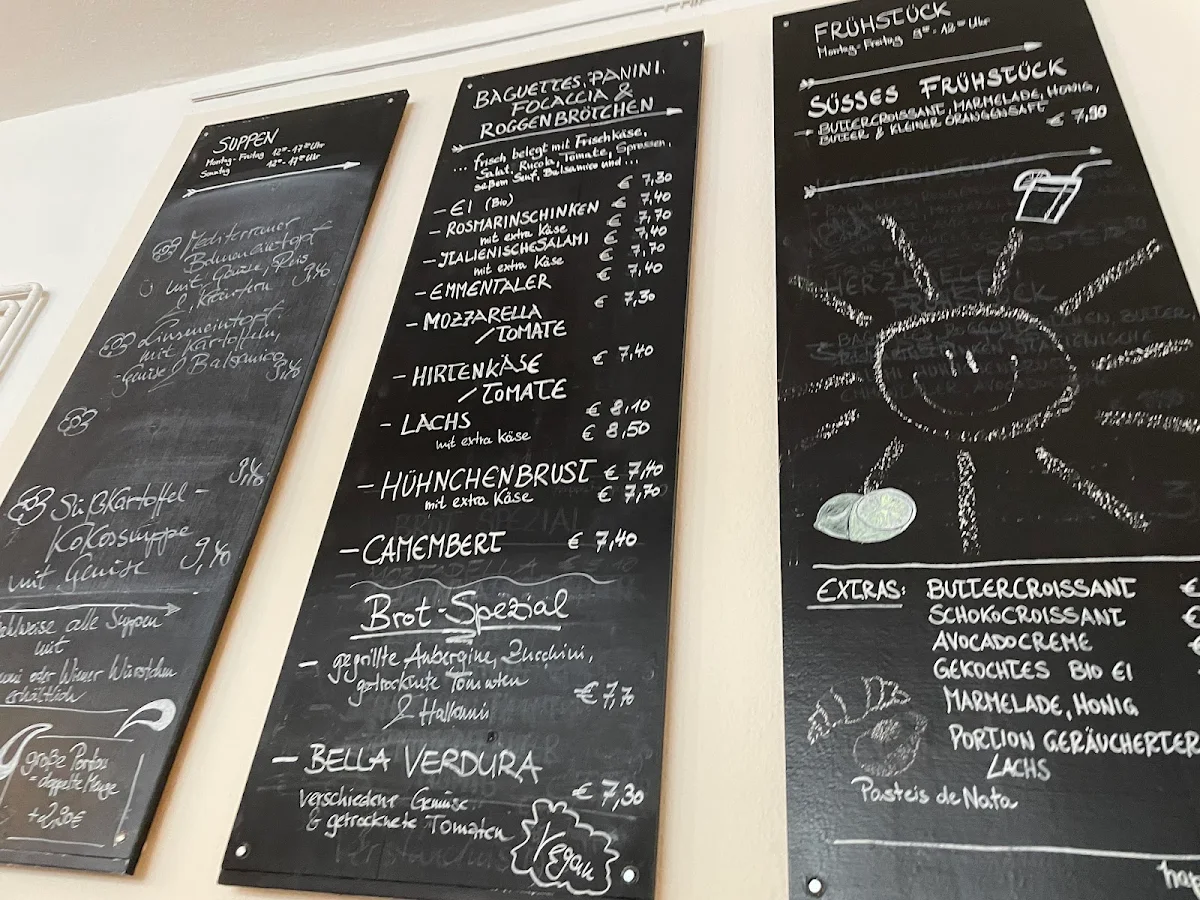 SUPPEN
Montag-Freitag 12⁰⁰-17⁰⁰ Uhr
Sonntag 12⁰⁰-17⁰⁰ Uhr
Mediterraner
Bohneneintopf
mit Gemüse, Reis
& Kräutern 9,40
Linseneintopf
mit Kartoffeln,
Gemüse & Balsamico
9,40
9,40
Süßkartoffel-
Kokossuppe
mit Gemüse 9,40
alle Suppen
mit
oder Wiener Würstchen
erhältlich
große Portion
= doppelte Menge
+ 2,90€
BAGUETTES, PANINI,
FOCACCIA &
ROGGENBRÖTCHEN
... frisch belegt mit Frischkäse,
Salat, Rucola, Tomate, Sprossen,
süßem Senf, Balsamico und ...
- EI (Bio) € 7,30
- ROSMARINSCHINKEN € 7,40
mit extra Käse € 7,70
- ITALIENISCHE SALAMI € 7,40
mit extra Käse € 7,70
- EMMENTALER € 7,40
- MOZZARELLA € 7,30
/TOMATE
- HIRTENKÄSE € 7,40
/TOMATE
- LACHS € 8,10
mit extra Käse € 8,50
- HÜHNCHENBRUST € 7,40
mit extra Käse € 7,70
- CAMEMBERT € 7,40
Brot-Spezial
- gegrillte Aubergine, Zucchini,
getrocknete Tomaten € 7,70
& Halloumi
- BELLA VERDURA
€ 7,30
verschiedene Gemüse
& getrocknete Tomaten
Vegan
FRÜHSTÜCK
Montag-Freitag 9⁰⁰-12⁰⁰ Uhr
SÜSSES FRÜHSTÜCK
BUTTERCROISSANT, MARMELADE, HONIG,
BUTTER & KLEINER ORANGENSAFT € 7,90
EXTRAS: BUTTERCROISSANT €
SCHOKOCROISSANT €
AVOCADOCREME €
GEKOCHTES BIO EI
MARMELADE, HONIG
PORTION GERÄUCHERTER
LACHS
Pasteis de Nata